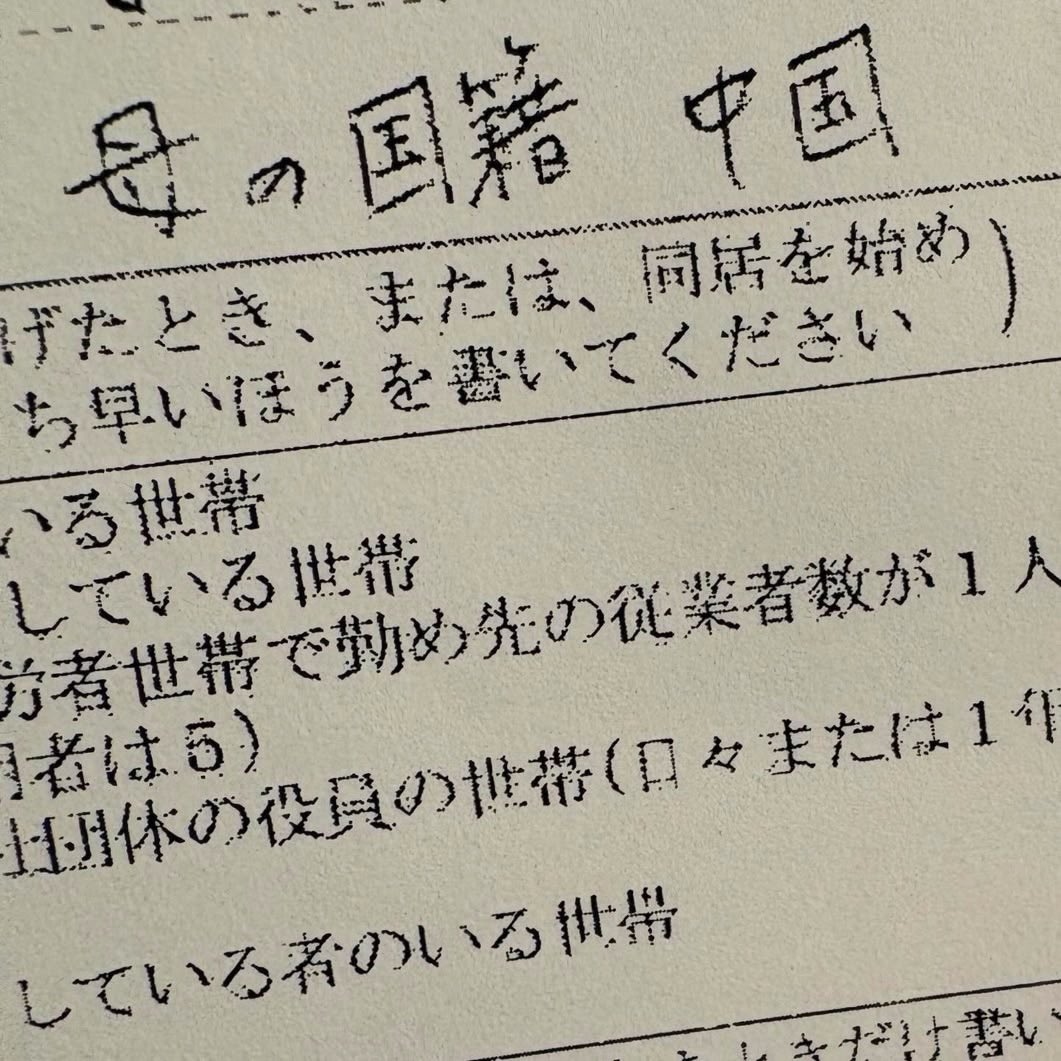 母の国籍 中国
げたとき、または、同居を始め)
ち早いほうを書いてください
いる世帯
している世帯
労者世帯で勤め先の従業者数が1人
用者は5)
社団体の役員の世帯(日々または1年
している者のいる世帯
ときだけ書い